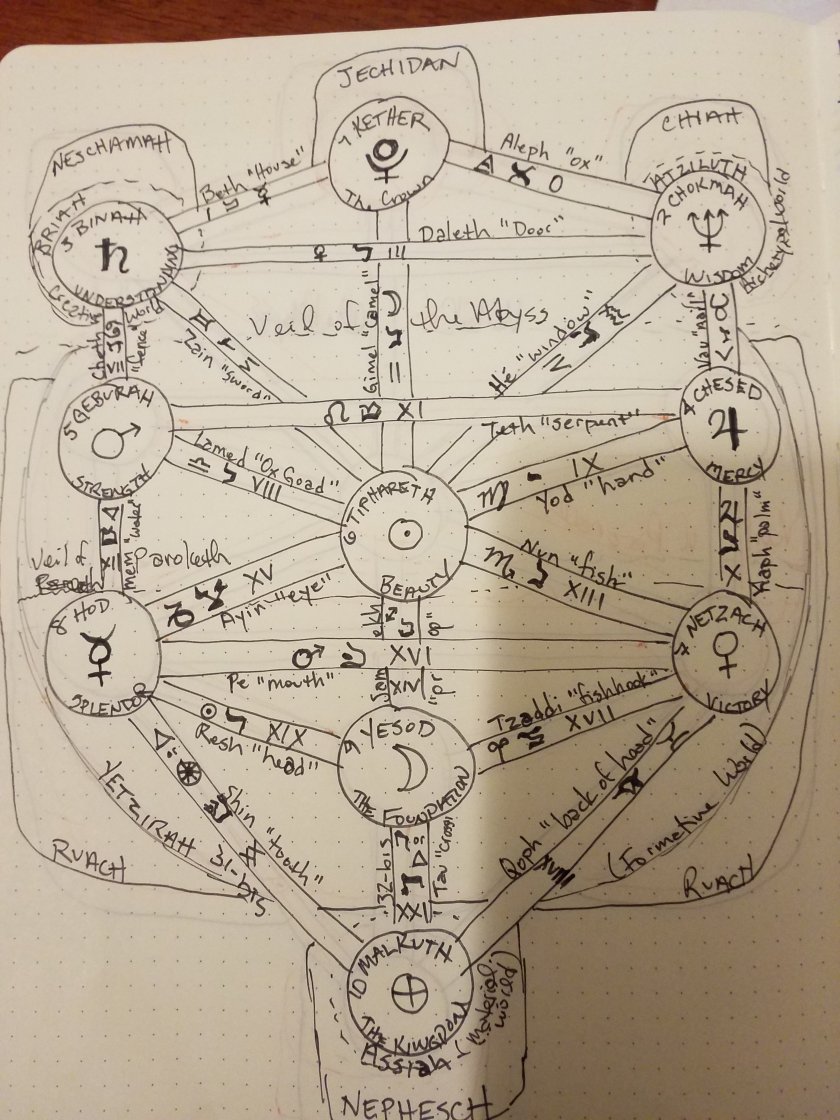 JECHIDAN
1 KETHER
The Crown
CHIAH
ATZILUTH
2 CHOKMAH
WISDOM
Archetypal World
NESCHAMAH
BRIAH
3 BINAH
UNDERSTANDING
Creative World
Beth "House"
I
Aleph "Ox"
O
Daleth "Door"
III
Veil of the Abyss
Gimel "Camel"
II
Zain "Sword"
VI
Hé "window"
IV
Vau "nail"
V
Cheth "fence"
VII
5 GEBURAH
STRENGTH
4 CHESED
MERCY
XI
Teth "serpent"
Lamed "Ox Goad"
VIII
IX
Yod "hand"
6 TIPHARETH
BEAUTY
Mem "water"
XII
Kaph "palm"
X
Veil of Paroketh
XV
Ayin "eye"
Nun "fish"
XIII
8 HOD
SPLENDOR
7 NETZACH
VICTORY
XVI
Pe "mouth"
Sam ekh
XIV
"pr op"
XIX
Resh "head"
Tzaddi "fishhook"
XVII
9 YESOD
THE FOUNDATION
Shin "tooth"
31-bis
Qoph "back of head"
XVIII
YETZIRAH
(Formative World)
RUACH
RUACH
32-bis
XXI
10 MALKUTH
THE KINGDOM
Assiah
(material world)
NEPHESCH